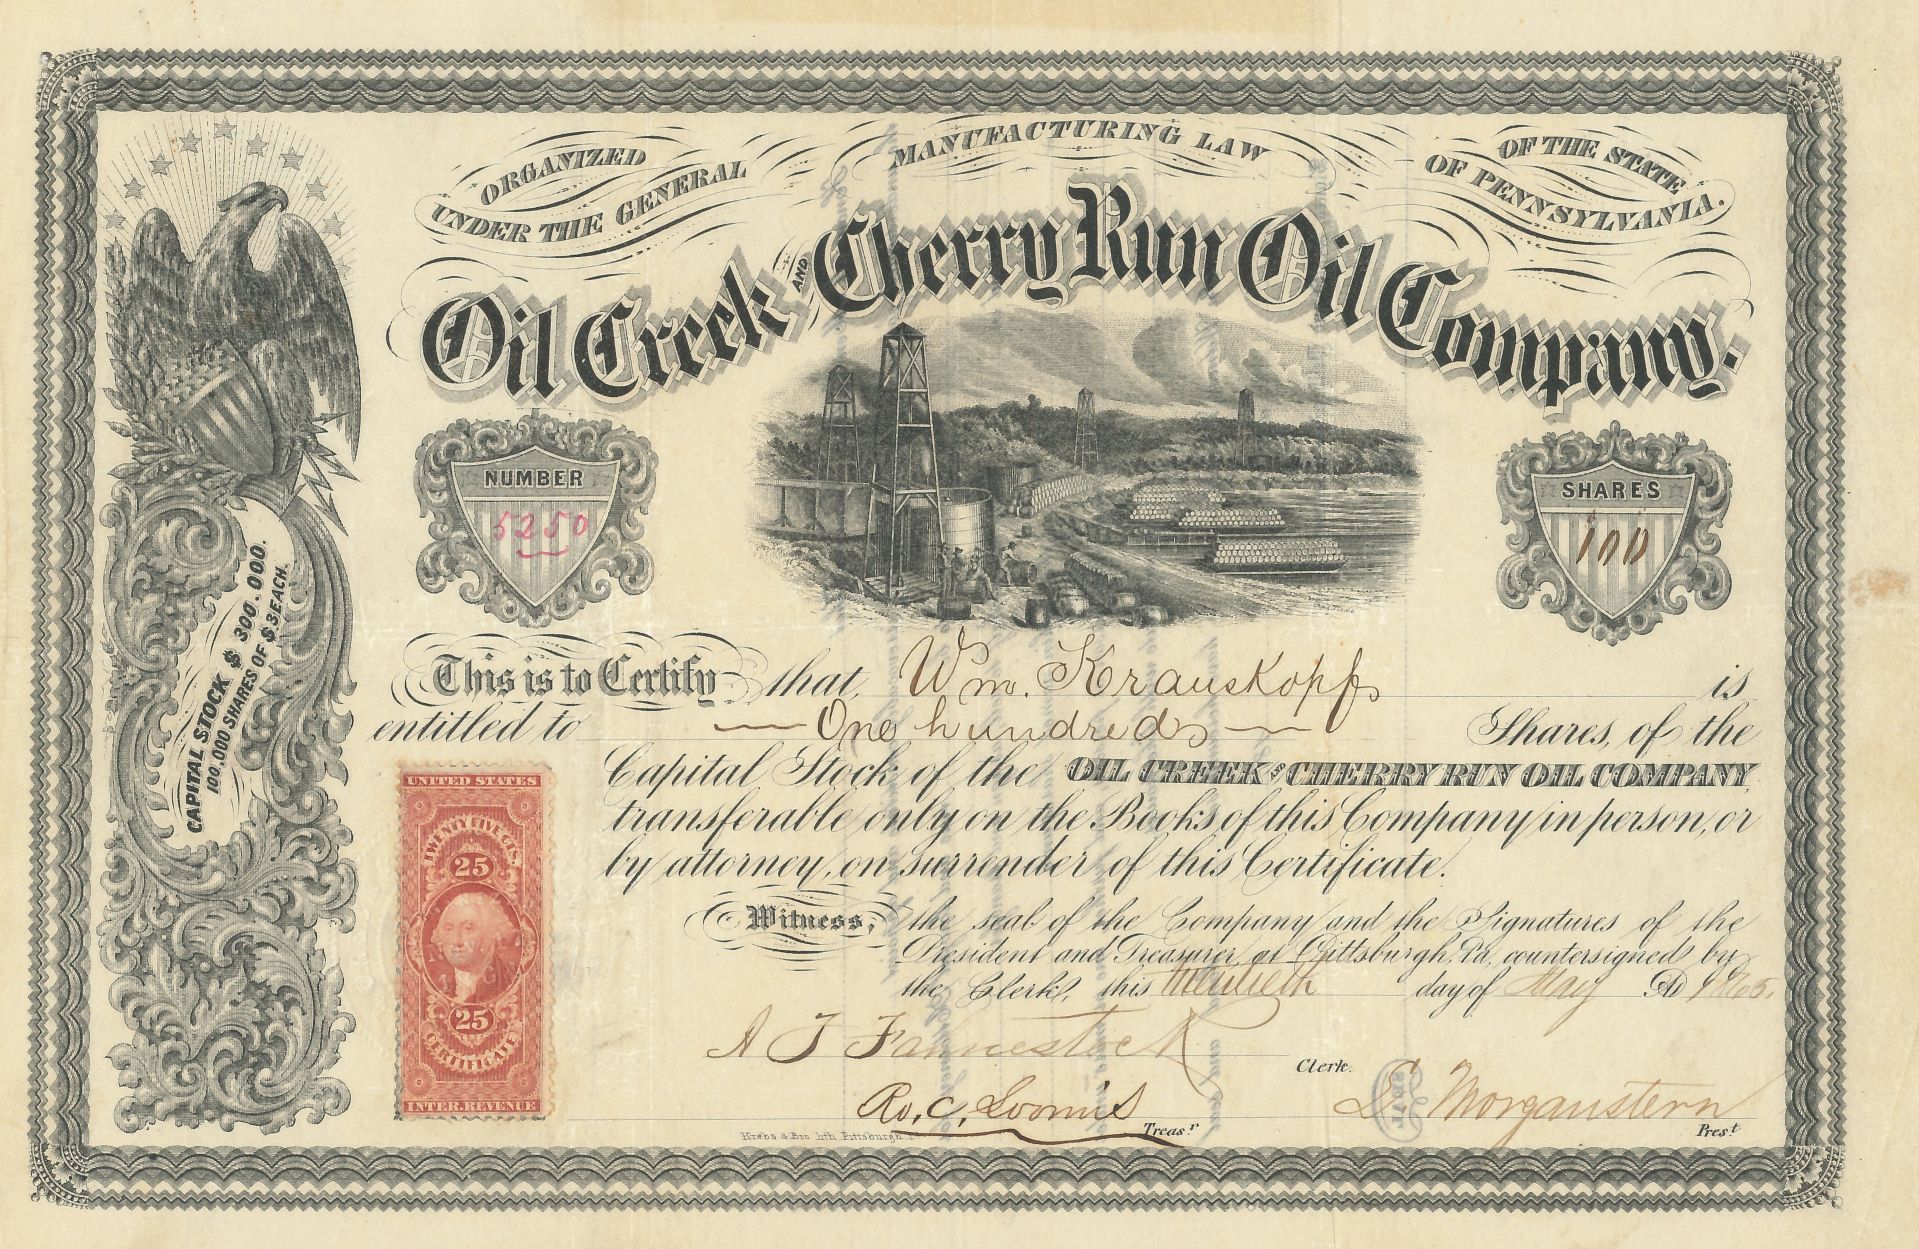 ORGANIZED
UNDER THE GENERAL
MANUFACTURING LAW
OF THE STATE
OF PENNSYLVANIA.
Oil Creek AND Cherry Run Oil Company.
NUMBER
5250
SHARES
100
CAPITAL STOCK $300.000.
100,000 SHARES OF $3 EACH.
This is to Certify that, Wm. Krauskopf is
entitled to One hundred Shares, of the
Capital Stock of the OIL CREEK & CHERRY RUN OIL COMPANY,
transferable only on the Books of this Company in person, or
by attorney, on surrender of this Certificate.
Witness, the seal of the Company and the Signatures of the
President and Treasurer, at Pittsburgh, Pa, countersigned by
the Clerk, this twentieth day of May AD 1865.
A J Fahnestock
Clerk.
Ro, C, Loomis
Treasr
D Morganstern
Prest
Krebs & Bro lith Pittsburgh
UNITED STATES
TWENTY FIVE CTS.
25
25
CERTIFICATE
INTER. REVENUE